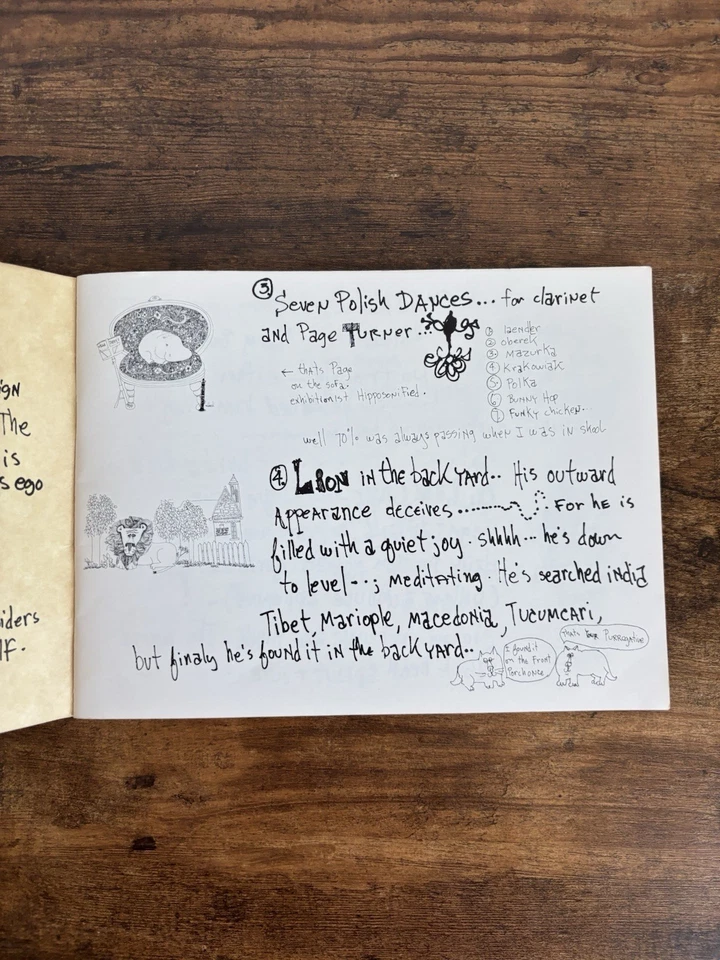 IGN
The
is
s ego
iders
lf.
③ Seven Polish DANCES... for clarinet
and Page TURNER...
← thats Page
on the sofa.
exhibitionist Hipposonified.
① laender
② oberek
③ Mazurka
④ Krakowiak
⑤ Polka
⑥ BUNNY HOP
⑦ FUNKY chicken...
well 70% was always passing when I was in skool
④ LION in the back YARD.. His outward
Appearance deceives ........... For he is
filled with a quiet joy. Shhhh... he's down
to level --; Meditating. He's searched india
Tibet, Mariople, Macedonia, Tucumcari,
but finaly he's found it in the back YARD..
I found it
on the Front
Porch once.
Thats Your Purrogative